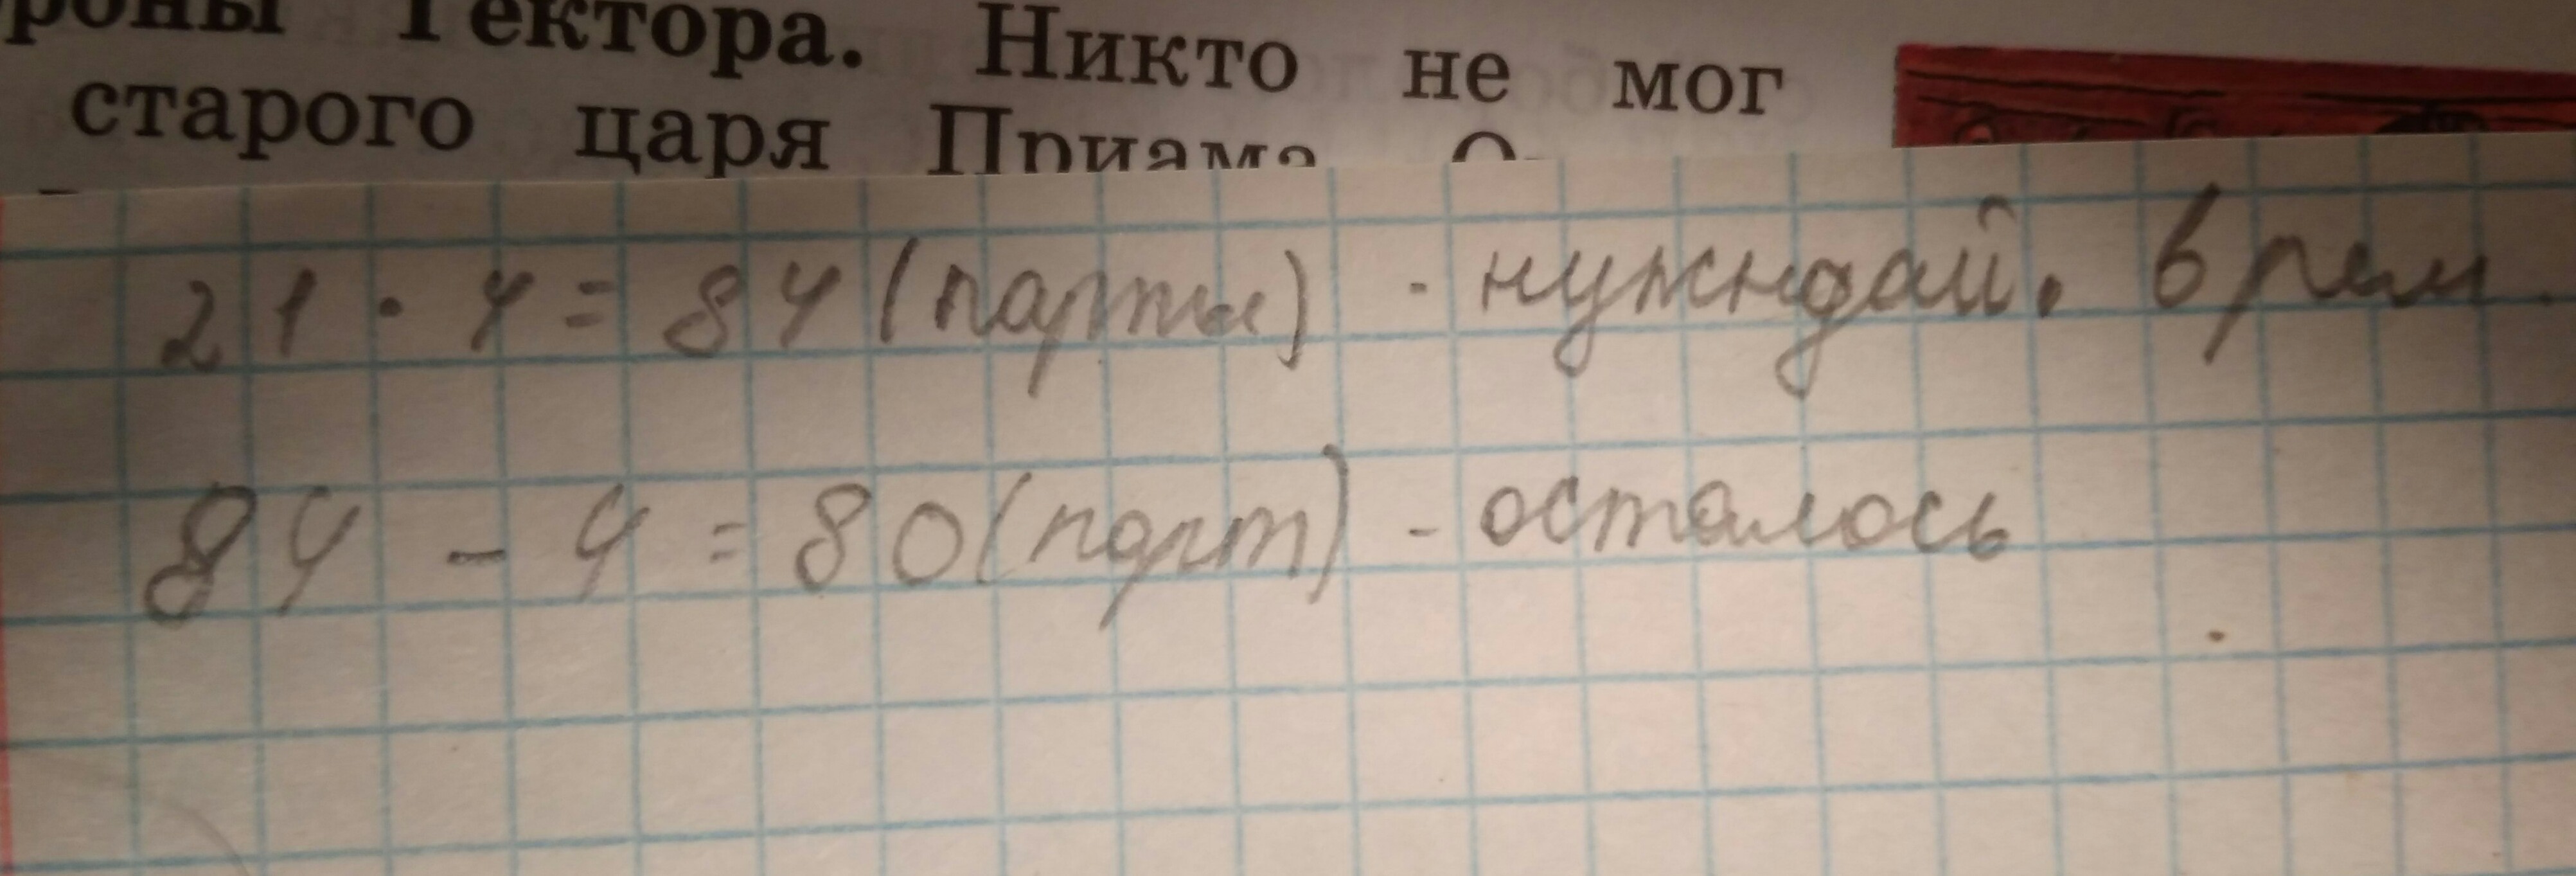 роны Гектора. Никто не мог
старого царя Приама
21 · 4 = 84 (парты) - нуждай. в рем.
84 - 4 = 80 (парт) - осталось